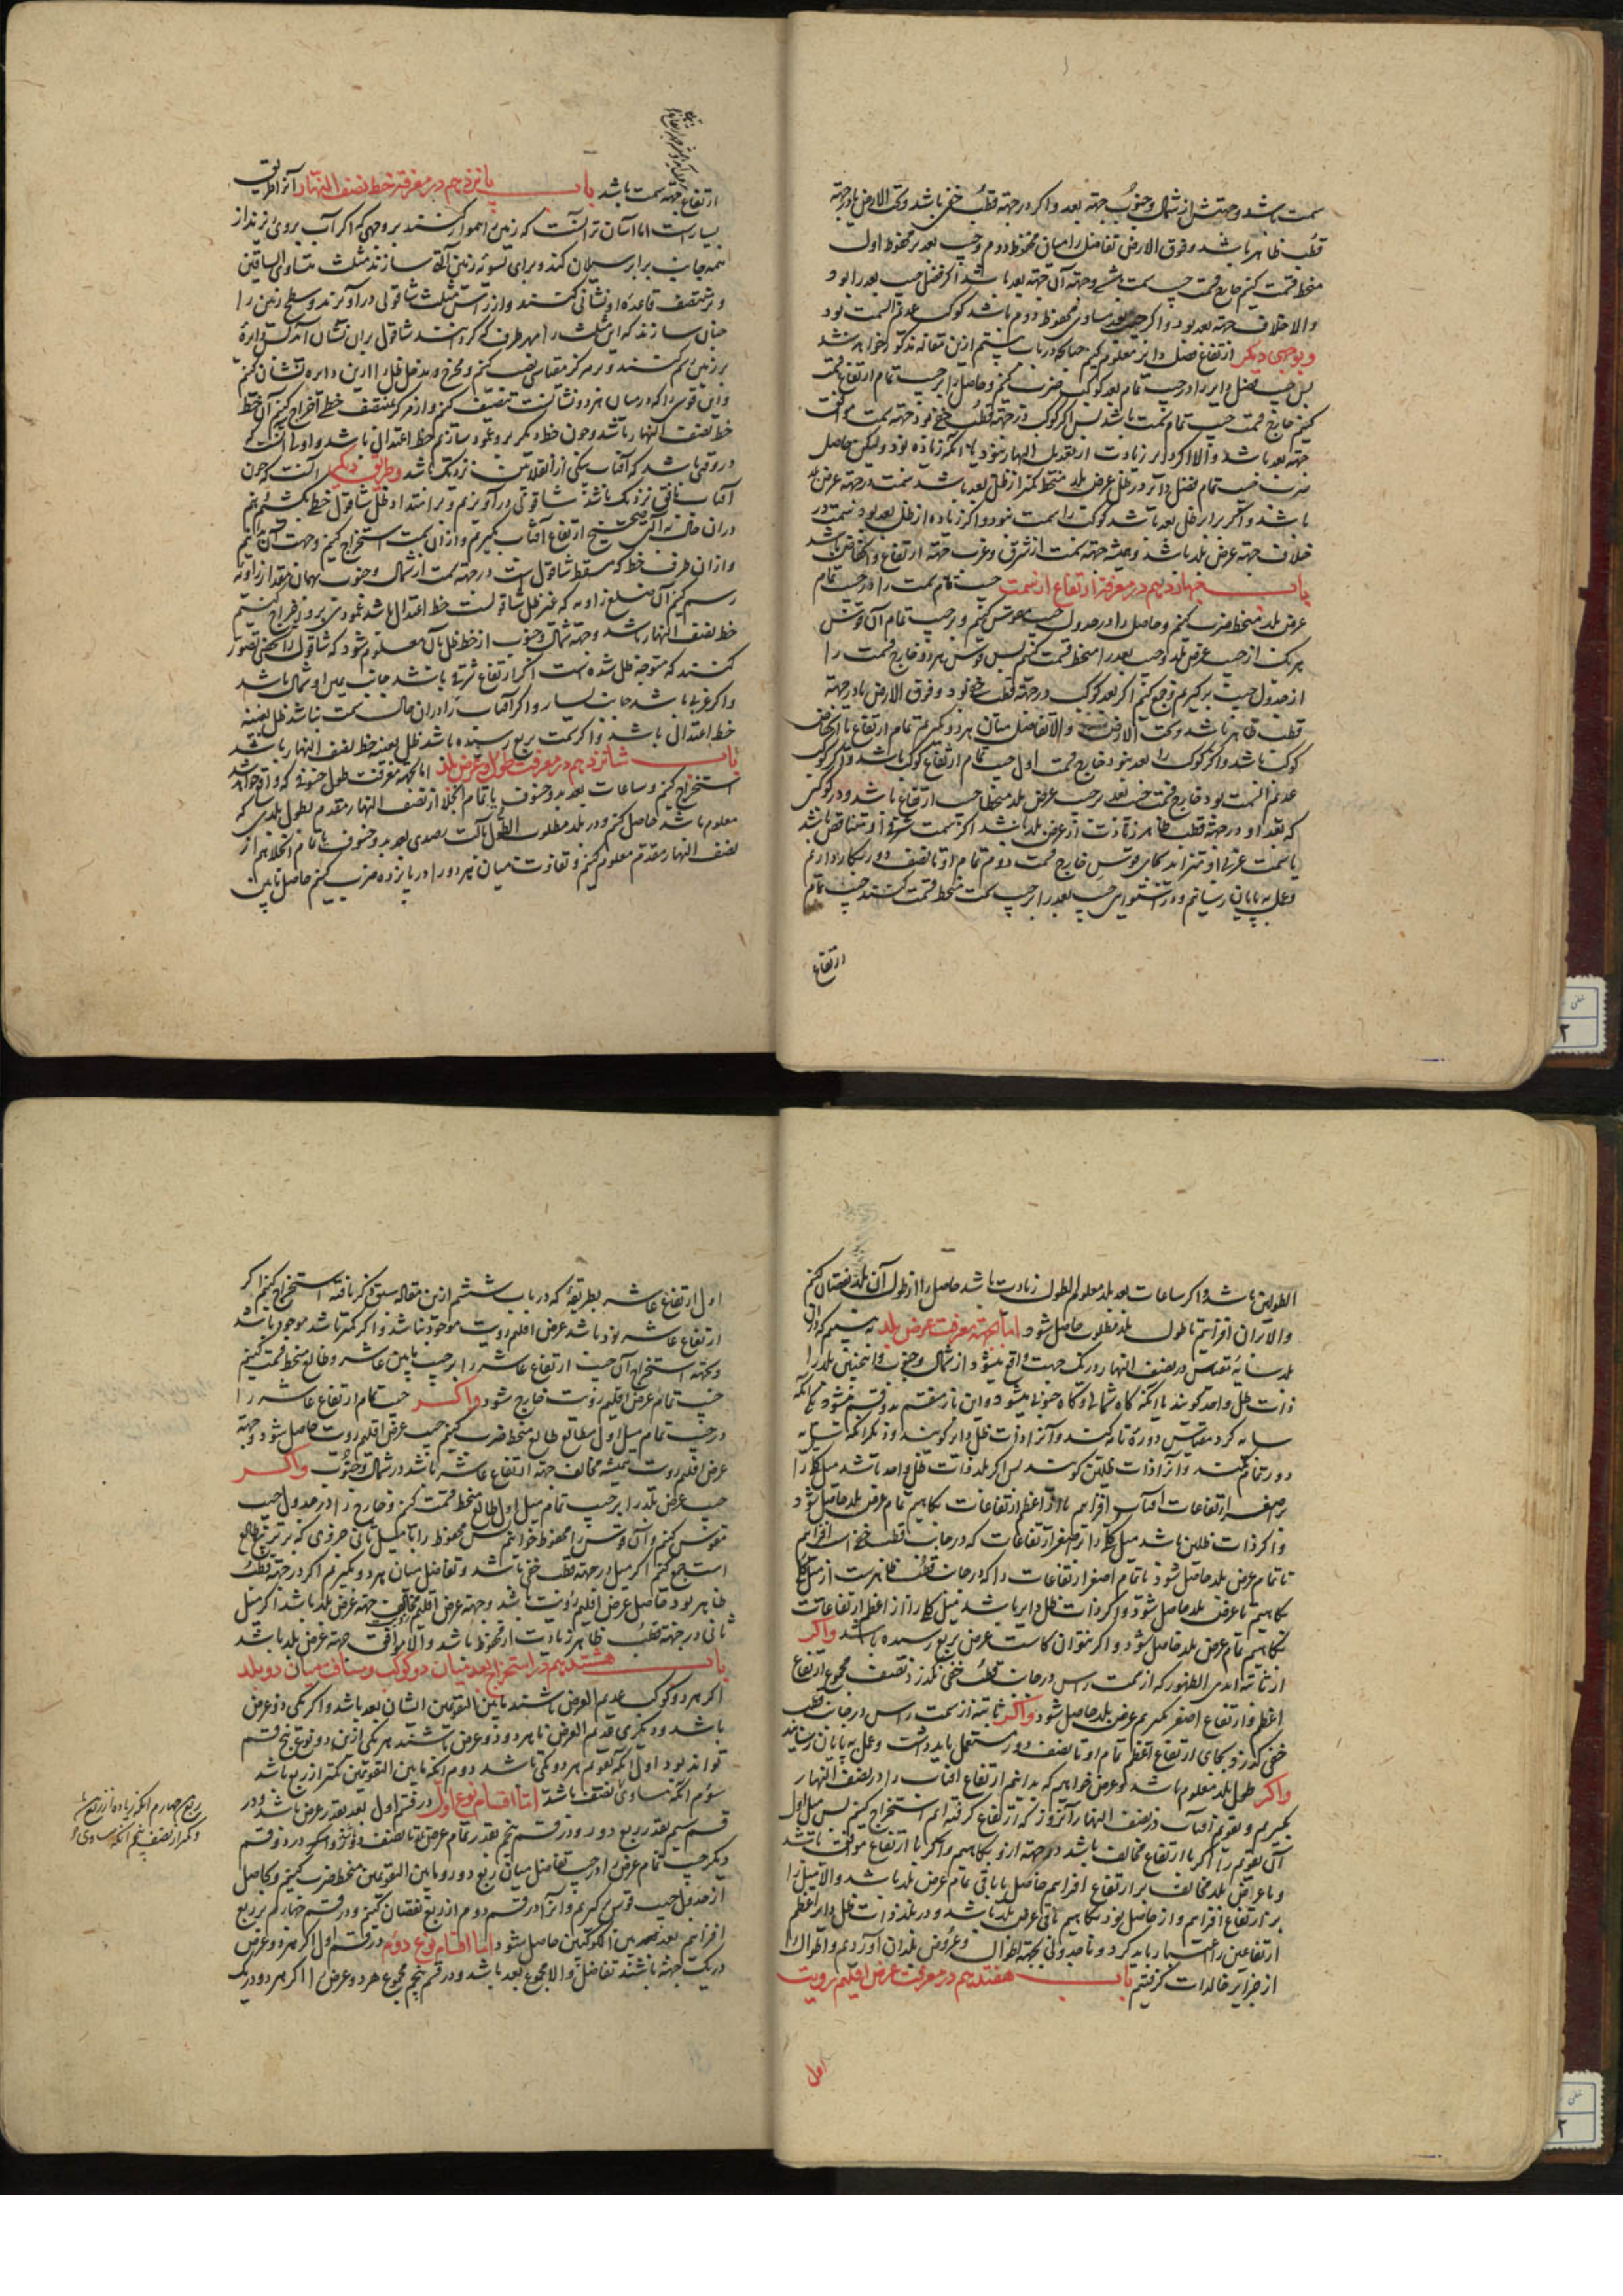 سمت باشد و جهتش از شمال و جنوب جهة بعد و اگر در جهة قطب خفی باشد و تحت الارض یا در جهة
قطب ظاهر باشد و فوق الارض تفاضل را میان محفوظ دوم و جیب بعد بر محفوظ اول
منحط قسمت کنیم خارج قسمت جیب سمت باشد و جهة آن جهة بعد باشد اگر فضل جیب بعد را بود
والا خلاف جهة بعد بود و اگر جیب بعد مساوی محفوظ دوم باشد کوکب عدیم السمت بود
و بوجهی دیگر از ارتفاع فضل دایر معلوم کنیم چنانکه در باب بیستم ازین مقاله مذکور خواهد شد
پس جیب فضل دایر را در جیب تمام بعد کوکب ضرب کنیم و حاصل را بر جیب تمام ارتفاع قسمت
کنیم خارج قسمت جیب تمام سمت باشد پس اگر کوکب در جهة قطب خفی بود جهة سمت موافق
جهة بعد باشد والا اگر دایر زیادت از تعدیل النهار نبود یا آنکه زیاده بود ولیکن حاصل
ضرب جیب تمام فضل دایر در ظل عرض بلد منحط کمتر از ظل بعد باشد سمت در جهة عرض بلد
باشد و اگر برابر ظل بعد باشد کوکب را سمت نبود و اگر زیاده از ظل بعد بود سمت در
خلاف جهة عرض بلد باشد و همیشه جهة سمت از شرق و غرب جهة ارتفاع و انخفاض باشد
باب چهاردهم در معرفة ارتفاع از سمت جیب تمام سمت را در جیب تمام
عرض بلد منحط ضرب کنیم و حاصل را در جدول جیب مقوس کنیم و بر جیب تمام آن قوس
هر یک از جیب عرض بلد و جیب بعد را منحط قسمت کنیم پس قوس هر دو خارج قسمت را
از جدول جیب برگیریم و جمع کنیم اگر بعد کوکب در جهة قطب خفی بود و فوق الارض یا در جهة
قطب ظاهر باشد و تحت الارض والا تفاضل میان هر دو بگیریم تمام ارتفاع یا انخفاض
کوکب باشد و اگر کوکب را بعد نبود خارج قسمت اول جیب تمام ارتفاع کوکب باشد و اگر کوکب
عدیم السمت بود خارج قسمت جیب بعد بر جیب عرض بلد منحطا جیب ارتفاع باشد و در کوکبی
که بعد او در جهة قطب ظاهر زیادت از عرض بلد باشد اگر سمت شرقی او متناقص باشد
یا سمت غربی او متزاید بجای قوس خارج قسمت دوم تمام او تا نصف دور بکار داریم
و عمل به پایان رسانیم و در استوا جیب بعد را بر جیب سمت منحط قسمت کنند جیب تمام
ارتفاع
ارتفاع جهة سمت باشد باب پانزدهم در معرفة خط نصف النهار آنرا طریق
بسیار است اما آسان تر آنست که زمین را هموار کنند بر وجهی که اگر آب بروی ریزند از
همه جانب برابر سیلان کند و برای تسویه زمین آلة سازند مثلث متساوی الساقین
و بر منتصف قاعده او نشانی کنند و از راس مثلث شاقولی در آویزند و سطح زمین را
چنان سازند که این مثلث را بهر طرف که گردانند شاقول بر آن نشان آید پس دایرة
بر زمین رسم کنند و بر مرکز مقیاس نصب کنیم و مخرج و مدخل ظل را ازین دایره نشان کنیم
و این قوس را که در میان هر دو نشانست تنصیف کنیم و از مرکز بمنتصف خطی اخراج کنیم آن خط
خط نصف النهار باشد و چون خط دیگر برو عمود سازیم خط اعتدال باشد و اولی آنست که
در وقتی باشد که آفتاب بیکی از انقلابین نزدیک باشد و طریق دیگر آنست که چون
آفتاب بافق نزدیک باشد شاقولی در آویزیم و بر امتداد ظل شاقول خطی بکشیم هم
در آن حال به آلتی صحیح ارتفاع آفتاب بگیریم و از آن سمت استخراج کنیم و جهت آن بدانیم
و از آن طرف خط که مسقط شاقول است در جهة سمت از شمال و جنوب بهمان مقدار زاویة
رسم کنیم آن ضلع زاویه که غیر ظل شاقولست خط اعتدال باشد عمودی برو اخراج کنیم
خط نصف النهار باشد و جهة شمال و جنوب از خط ظل بآن معلوم شود که شاقول را شخصی تصور
کنند که متوجه ظل شده است اگر ارتفاع شرقی باشد جانب یمین او شمال باشد
و اگر غربی باشد جانب یسار و اگر آفتاب را در آن حال سمت نباشد ظل بعینه
خط اعتدال باشد و اگر سمت بربع رسیده باشد ظل بعینه خط نصف النهار باشد
باب شانزدهم در معرفت طول و عرض بلد اما بجهة معرفت طول خسوفی که واقع خواهد شد
استخراج کنیم و ساعات بعد بدو خسوف یا تمام انجلا از نصف النهار مقدم بطول بلدی که
معلوم باشد حاصل کنیم و در بلد مطلوب الطول بآلت رصدی بعد بدو خسوف یا تمام انجلا هم از
نصف النهار مقدم معلوم کنیم و تفاوت میان هر دو را در پانزده ضرب کنیم حاصل ما بین
الطولین باشد و اگر ساعات بعد بلد معلوم الطول زیادت باشد حاصل را از طول آن بلد نقصان کنیم
والا بر آن افزاییم تا طول بلد مطلوب حاصل شود اما بجهة معرفت عرض بلد به بینیم که در آن
بلد سایه مقیاس در نصف النهار در یک جهت واقع میشود از شمال و جنوب و اینچنین بلد را
ذات ظل واحد گویند یا آنکه گاه شمالی و گاه جنوبی میشود و این باز منقسم بدو قسم میشود یکی آنکه
سایه گرد مقیاس دورة تمام کند و آنرا ذات ظل دایر گویند و دیگر آنکه سایه
دور تمام نکند و آنرا ذات ظلین گویند پس اگر بلد ذات ظل واحد باشد میل کلی را
بر اصغر ارتفاعات آفتاب افزاییم یا از اعظم ارتفاعات بکاهیم تمام عرض بلد حاصل شود
و اگر ذات ظلین باشد میل کلی را بر اصغر ارتفاعات که در جانب قطب خفی است افزاییم
تا تمام عرض بلد حاصل شود یا تمام اصغر ارتفاعات را که در جانب قطب ظاهرست از میل کلی
بکاهیم تا عرض بلد حاصل شود و اگر ذات ظل دایر باشد میل کلی را از اعظم ارتفاعات
بکاهیم تمام عرض بلد حاصل شود و اگر نتوان کاست عرض بربع رسیده باشد و اگر
از ثابته ابدی الظهور که از سمت راس در جانب قطب خفی نگذرد نصف مجموع ارتفاع
اعظم و ارتفاع اصغر بگیریم عرض بلد حاصل شود و اگر ثابته از سمت راس در جانب قطب
خفی گذرد بجای ارتفاع اعظم تمام او تا نصف دور مستعمل باید داشت و عمل به پایان رسانید
و اگر طول بلد معلوم باشد و عرض خواهیم که بدانیم ارتفاع آفتاب را در نصف النهار
بگیریم و تقویم آفتاب در نصف النهار آنروز که ارتفاع گرفته ایم استخراج کنیم پس میل اول
آن تقویم را اگر با ارتفاع مخالف باشد در جهة ازو بکاهیم و اگر با ارتفاع موافق باشد
و با عرض بلد مخالف بر ارتفاع افزاییم حاصل یا باقی تمام عرض بلد باشد والا میل را
بر ارتفاع افزاییم و از حاصل نود بکاهیم باقی عرض بلد باشد و در بلد ذات ظل دایر اعظم
ارتفاعین را اعتبار باید کرد و ما جدولی بجهة اطوال و عروض بلدان آوردیم و اطوال را
از جزایر خالدات گرفتیم باب هفدهم در معرفت عرض اقلیم رویت
اول
اول ارتفاع عاشر بطریقه که در باب ششم ازین مقاله سبق ذکر یافته استخراج کنیم اگر
ارتفاع عاشر نود باشد عرض اقلیم رویت موجود نباشد و اگر کمتر باشد موجود باشد
و بجهة استخراج آن جیب ارتفاع عاشر را بر جیب ما بین عاشر و طالع منحط قسمت کنیم
جیب تمام عرض اقلیم رویت خارج شود و اگر جیب تمام ارتفاع عاشر را
در جیب تمام میل اول مطالع طالع منحط ضرب کنیم جیب عرض اقلیم رویت حاصل شود و جهة
عرض اقلیم رویت همیشه مخالف جهة ارتفاع عاشر باشد در شمال و جنوب و اگر
جیب عرض بلد را بر جیب تمام میل اول طالع منحط قسمت کنیم و خارج را در جدول جیب
مقوس کنیم و آن قوس را محفوظ خوانیم پس محفوظ را با میل ثانی جزوی که بر تربیع طالع
است جمع کنیم اگر میل در جهة قطب خفی باشد و تفاضل میان هر دو بگیریم اگر در جهة قطب
ظاهر بود حاصل عرض اقلیم رویت باشد و جهة عرض اقلیم مخالف جهة عرض بلد باشد اگر میل
ثانی در جهة قطب ظاهر زیادت از محفوظ باشد والا موافق جهة عرض بلد باشد
باب هشتدهم در استخراج بعد میان دو کوکب و مسافت میان دو بلد
اگر هر دو کوکب عدیم العرض باشند ما بین التقویمین ایشان بعد باشد و اگر یکی ذو عرض
باشد و دیگری عدیم العرض یا هر دو ذو عرض باشند هر یکی ازین دو نوع پنج قسم
تواند بود اول آنکه تقویم هر دو یکی باشد دوم آنکه ما بین التقویمین کمتر از ربع باشد
سیوم آنکه مساوی نصف باشد اما اقسام نوع اول در قسم اول بعد بقدر عرض باشد و در
قسم سیم بقدر ربع دور و در قسم پنجم بقدر تمام عرض تا نصف دور و در دو قسم
دیگر جیب تمام عرض را در جیب تفاضل میان ربع دور و ما بین التقویمین منحط ضرب کنیم و حاصل
از جدول جیب قوس برگیریم و آنرا در قسم دوم از ربع نقصان کنیم و در قسم چهارم بر ربع
افزاییم بعد بین الکوکبین حاصل شود اما اقسام نوع دوم در قسم اول اگر هر دو عرض
در یک جهة باشند تفاضل والا مجموع بعد باشد و در قسم پنجم مجموع هر دو عرض را اگر هر دو در یک
ربع چهارم آنکه زیاده از ربع
و کمتر از نصف پنجم آنکه مساوی